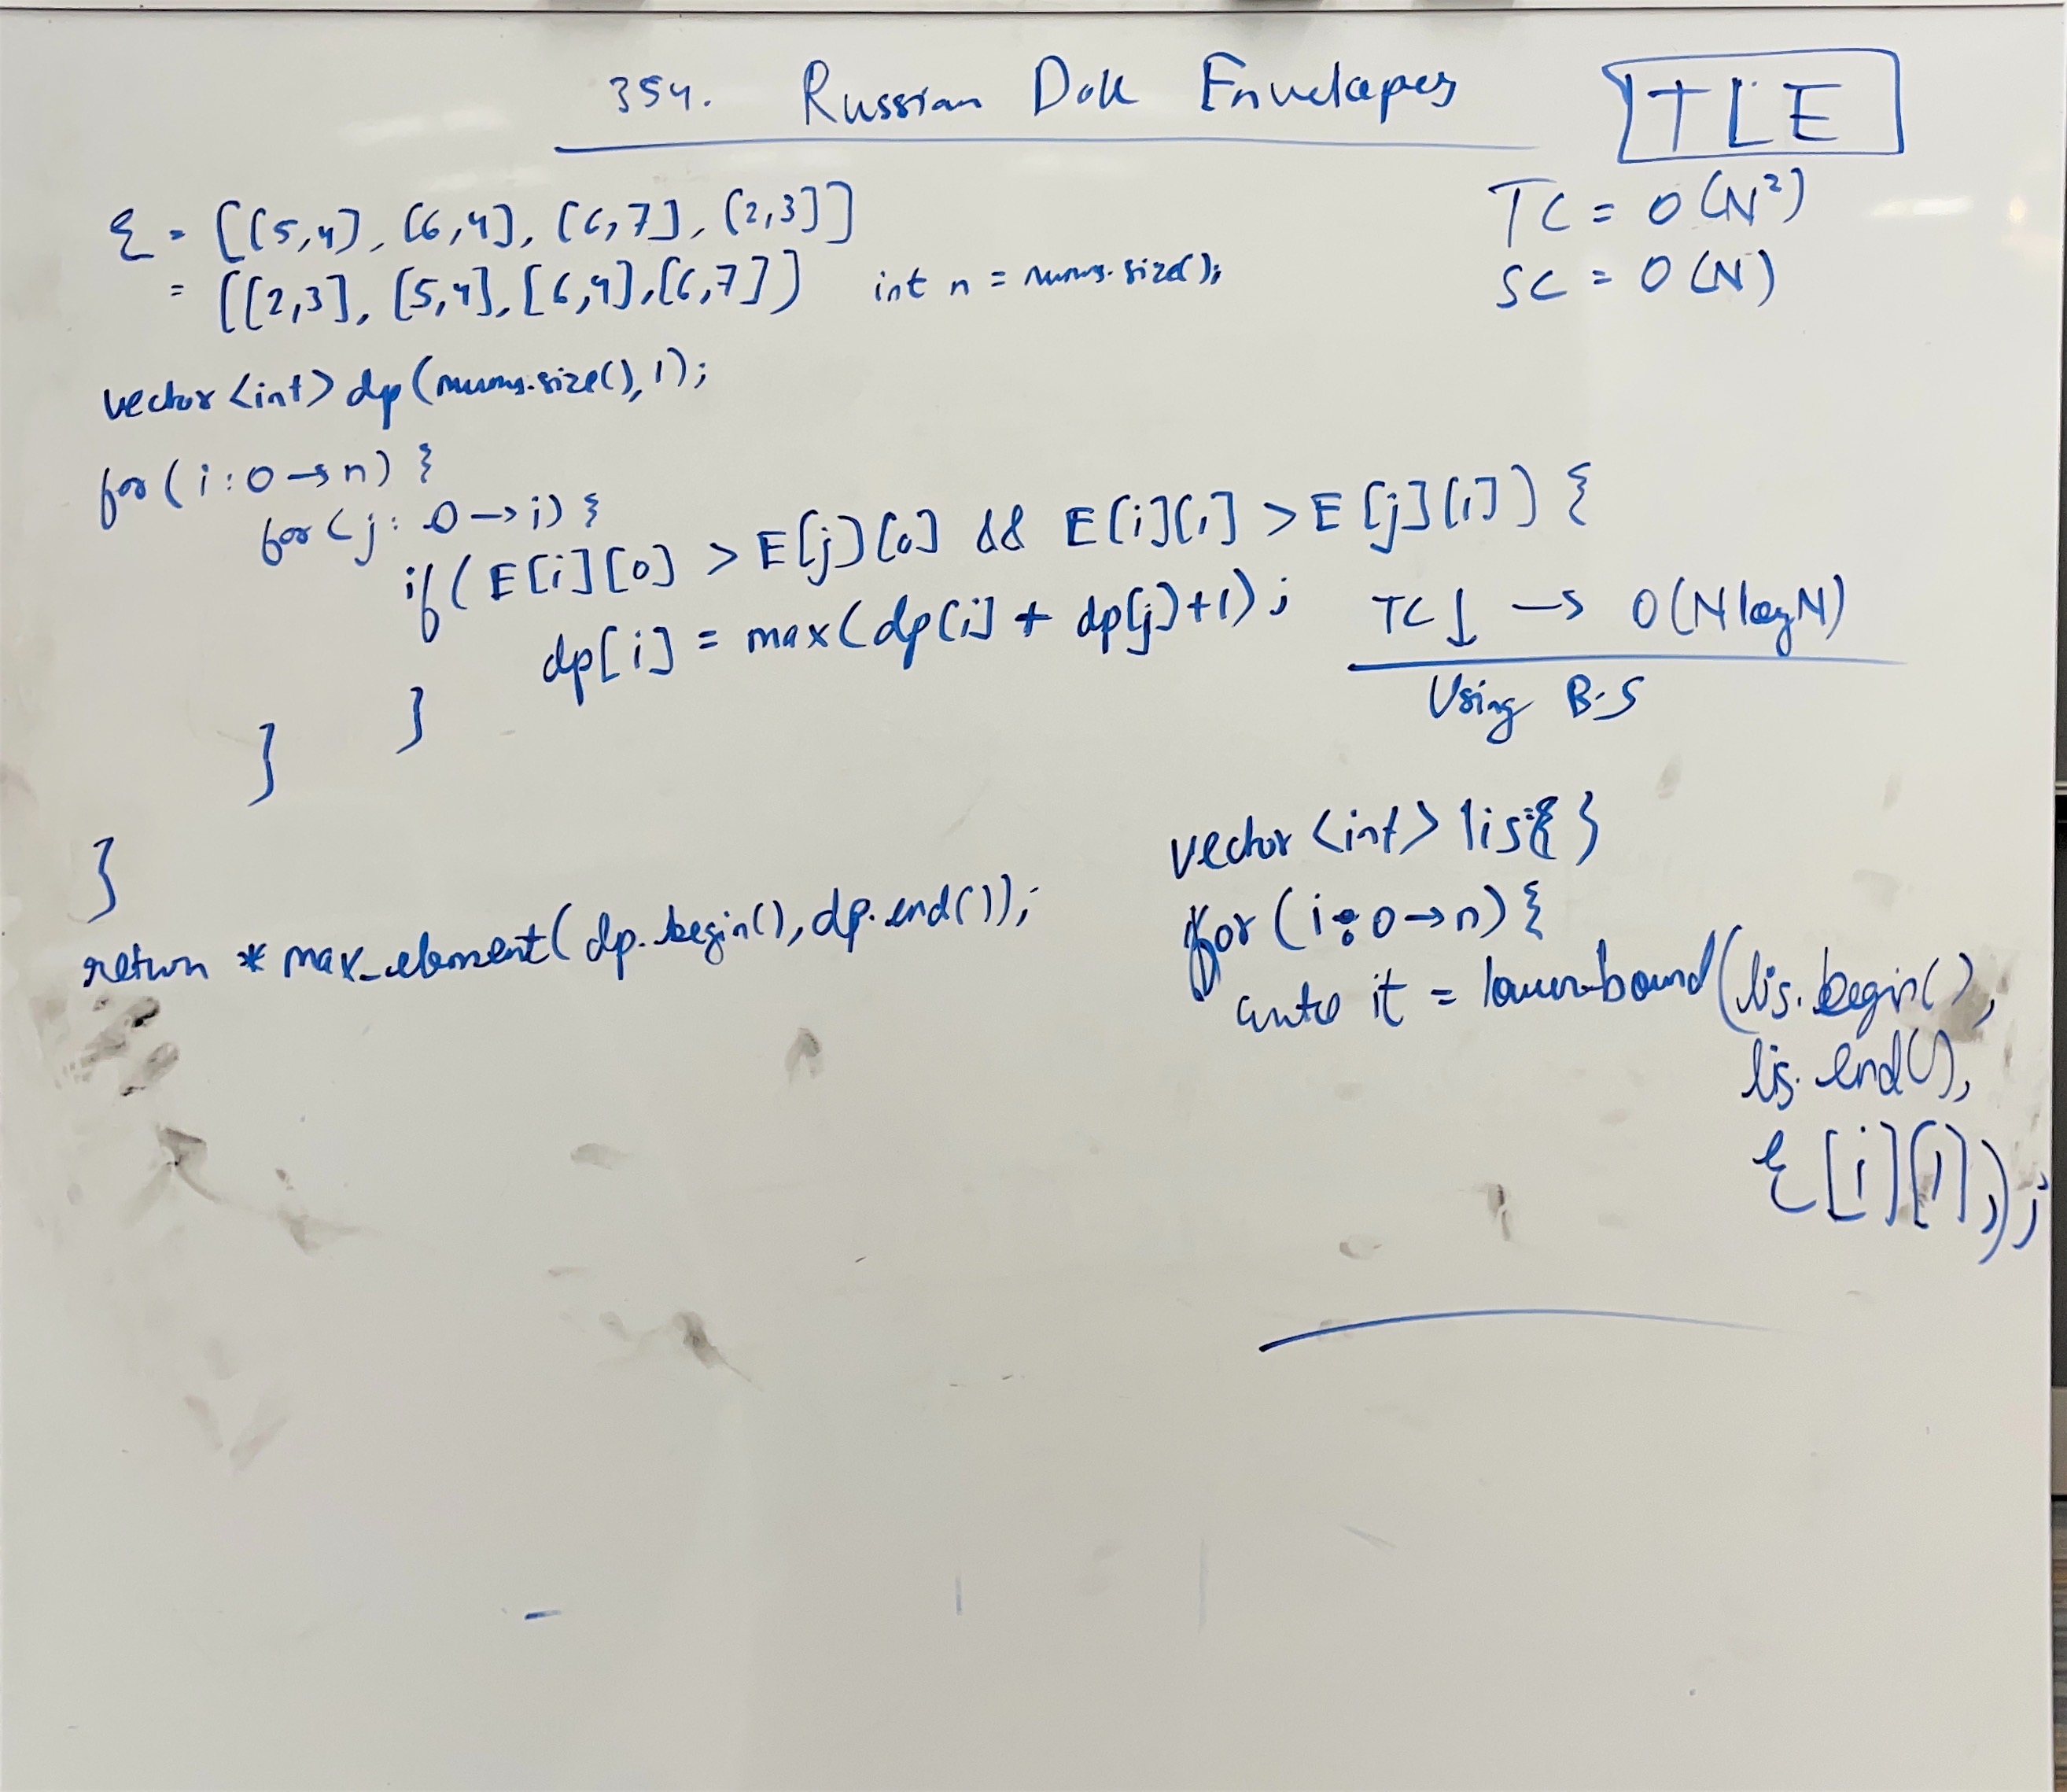 354. Russian Doll Envelopes
TLE
TC = O(N²)
SC = O(N)
E = [[5,4], [6,4], [6,7], [2,3]]
= [[2,3], [5,4], [6,4], [6,7]] int n = nums.size();
vector <int> dp(nums.size(), 1);
for (i : 0 → n) {
for (j : 0 → i) {
if (E[i][0] > E[j][0] && E[i][1] > E[j][1]) {
dp[i] = max(dp[i] + dp[j]+1);
}
}
}
return *max_element(dp.begin(), dp.end());
TC↓ → O(N log N)
Using B.S
vector <int> lis{}
for (i : 0 → n) {
auto it = lower_bound(lis.begin(),
lis.end(),
E[i][1],);